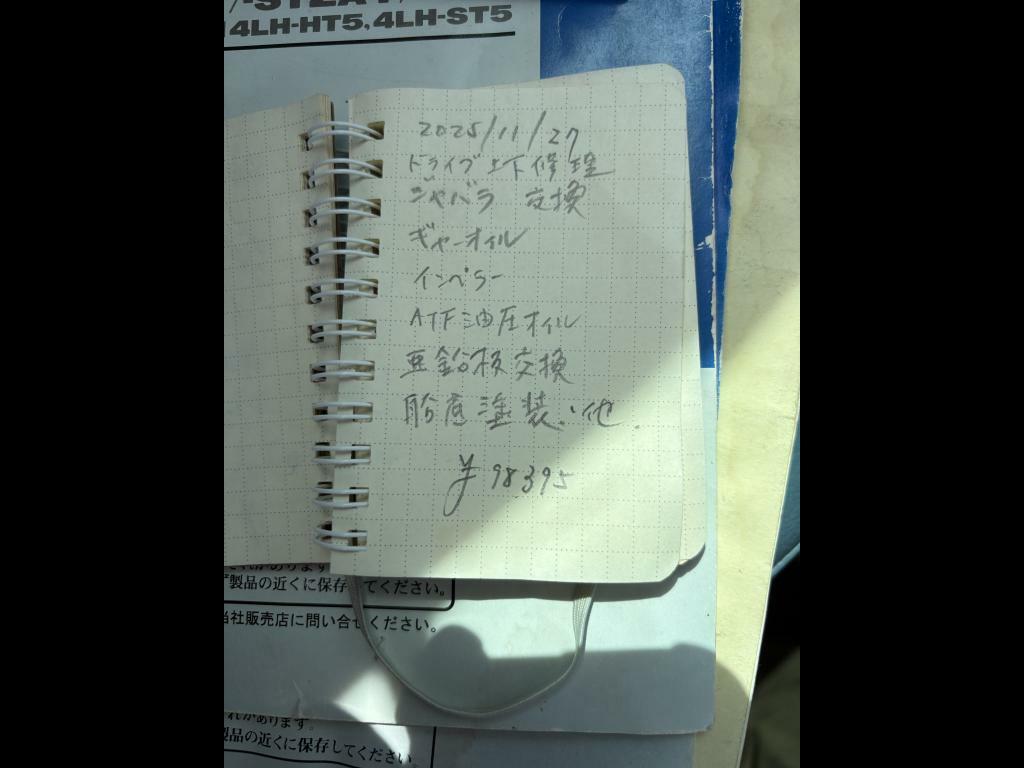 4LH-HT5,4LH-ST5
2025/11/27
ドライブ上下修理
ジャバラ 交換
ギヤーオイル
インペラー
ATF油圧オイル
亜鉛板交換
船底塗装、他
¥98395
製品の近くに保存してください。
当社販売店に問い合せください。
れがあります。
製品の近くに保存してください。